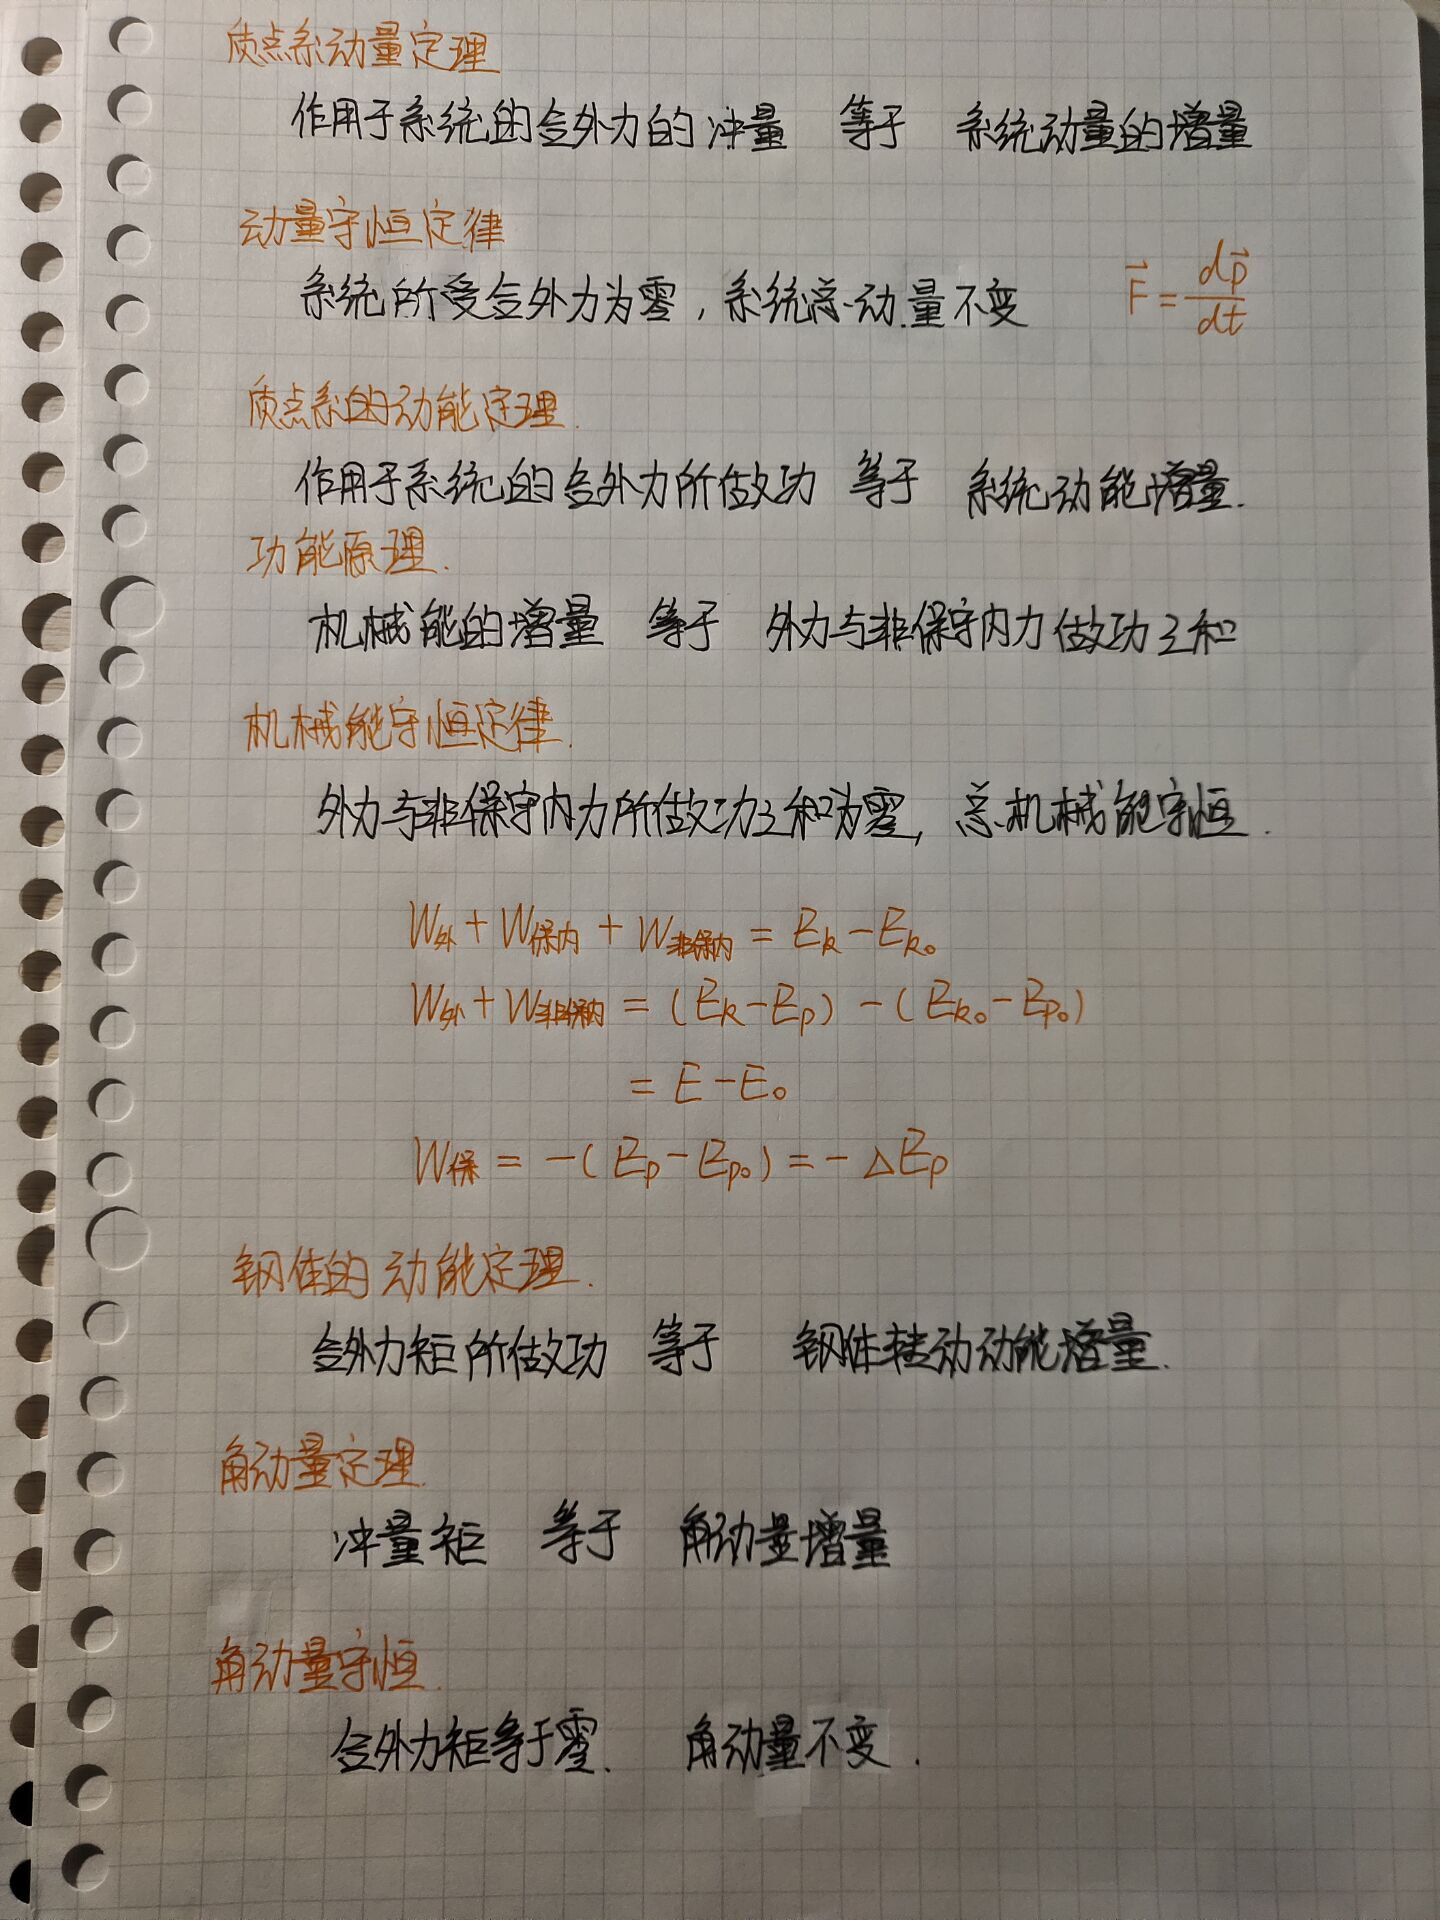 质点系动量定理
作用于系统的合外力的冲量 等于 系统动量的增量
动量守恒定律
系统所受合外力为零,系统总动量不变
F⃗ = dp⃗/dt
质点系的动能定理.
作用于系统的合外力所做功 等于 系统动能增量.
功能原理.
机械能的增量 等于 外力与非保守内力做功之和
机械能守恒定律.
外力与非保守内力所做功之和为零,总机械能守恒.
W外 + W保内 + W非保内 = Ek - Ek₀
W外 + W非保内 = (Ek - Ep) - (Ek₀ - Ep₀)
= E - E₀
W保 = -(Ep - Ep₀) = - ΔEp
钢体的动能定理.
合外力矩所做功 等于 钢体转动动能增量.
角动量定理.
冲量矩 等于 角动量增量
角动量守恒.
合外力矩等于零. 角动量不变.